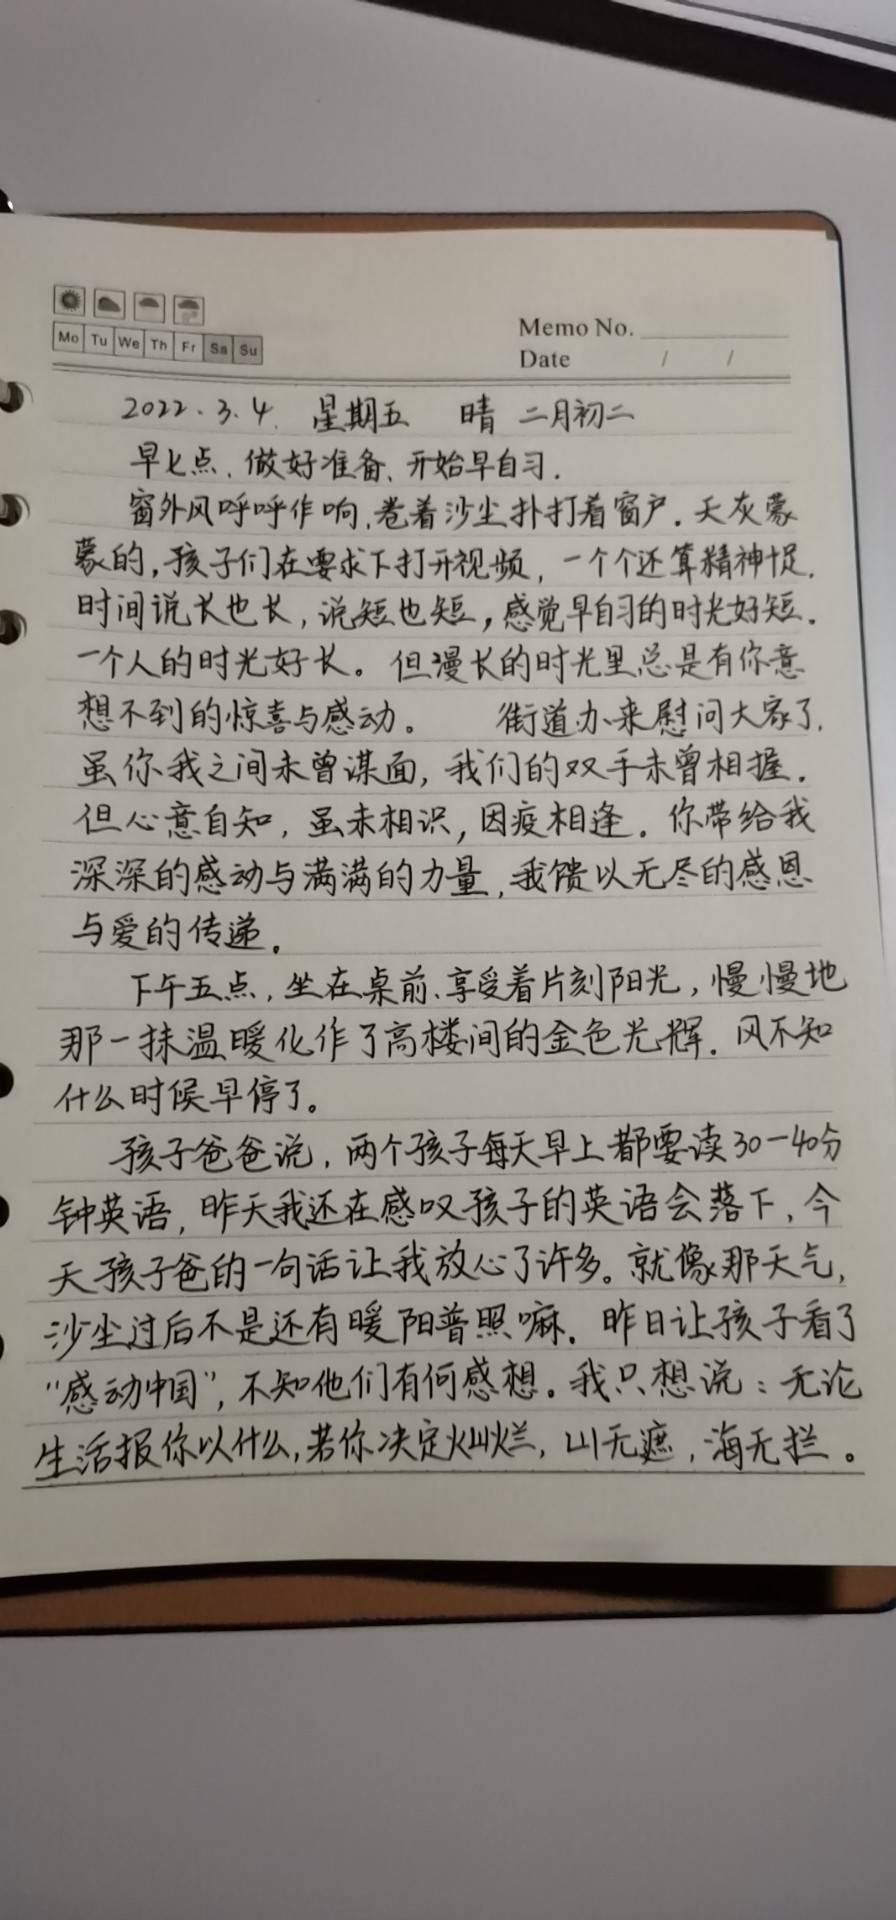 Mo Tu We Th Fr Sa Su
Memo No.
Date / /
2022.3.4. 星期五 晴 二月初二
早七点、做好准备、开始早自习.
窗外风呼呼作响,卷着沙尘扑打着窗户.天灰蒙
蒙的,孩子们在要求下打开视频,一个个还算精神十足.
时间说长也长,说短也短,感觉早自习的时光好短.
一个人的时光好长。但漫长的时光里总是有你意
想不到的惊喜与感动。 街道办来慰问大家了.
虽你我之间未曾谋面,我们的双手未曾相握.
但心意自知,虽未相识,因疫相逢.你带给我
深深的感动与满满的力量,我馈以无尽的感恩
与爱的传递.
下午五点,坐在桌前、享受着片刻阳光,慢慢地
那一抹温暖化作了高楼间的金色光辉.风不知
什么时候早停了。
孩子爸爸说,两个孩子每天早上都要读30一40分
钟英语,昨天我还在感叹孩子的英语会落下,今
天孩子爸的一句话让我放心了许多。就像那天气,
沙尘过后不是还有暖阳普照嘛.昨日让孩子看了
“感动中国”,不知他们有何感想。我只想说:无论
生活报你以什么,若你决定灿烂,山无遮,海无拦。